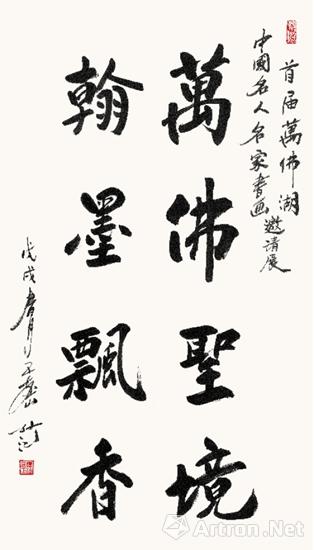 首届萬佛湖
中國名人名家書画邀请展
萬佛聖境
翰墨飄香
戊戌
Artron.Net